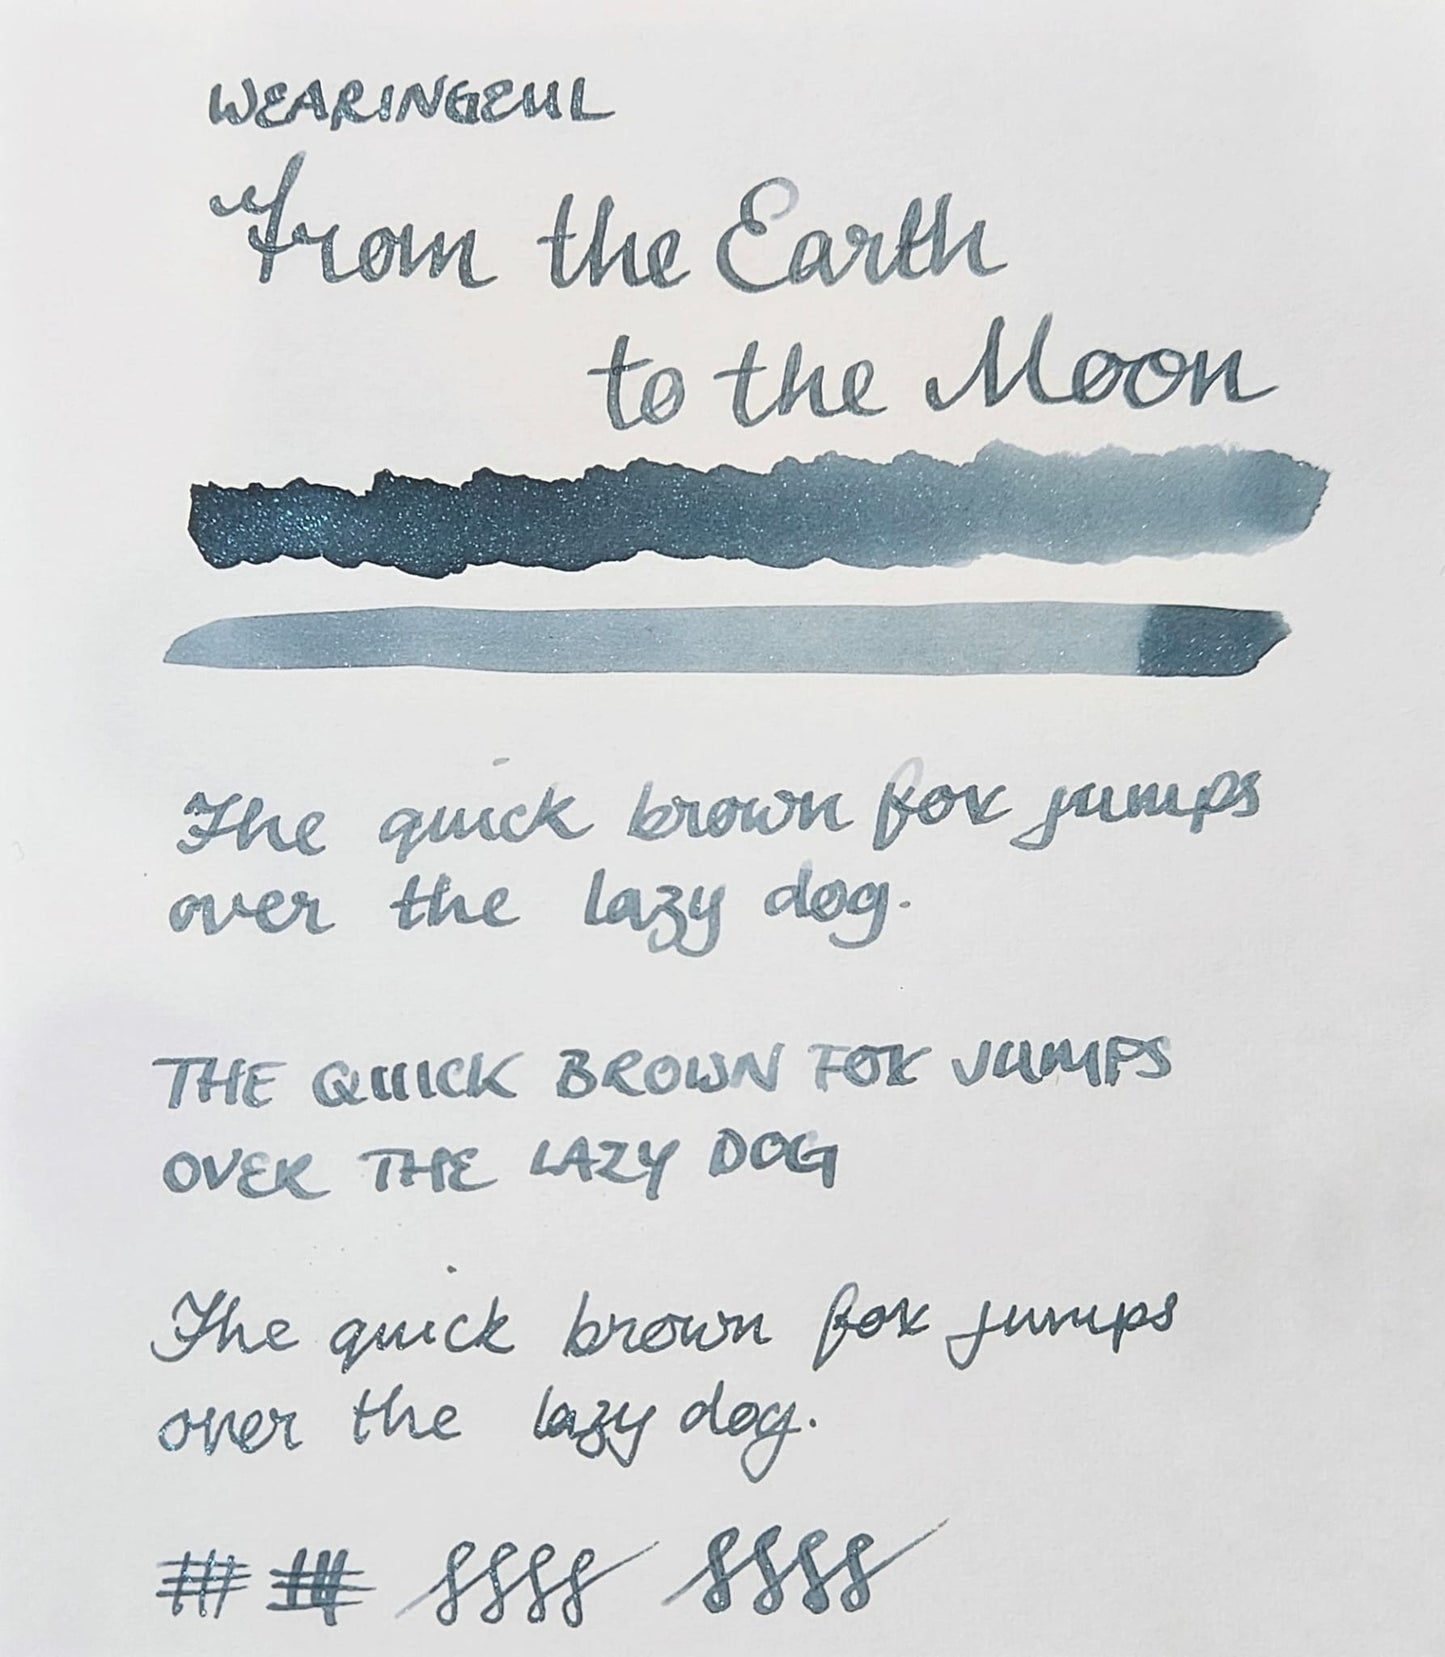 WEARINGEUL
From the Earth
to the Moon
The quick brown fox jumps
over the lazy dog.
THE QUICK BROWN FOX JUMPS
OVER THE LAZY DOG
The quick brown fox jumps
over the lazy dog.